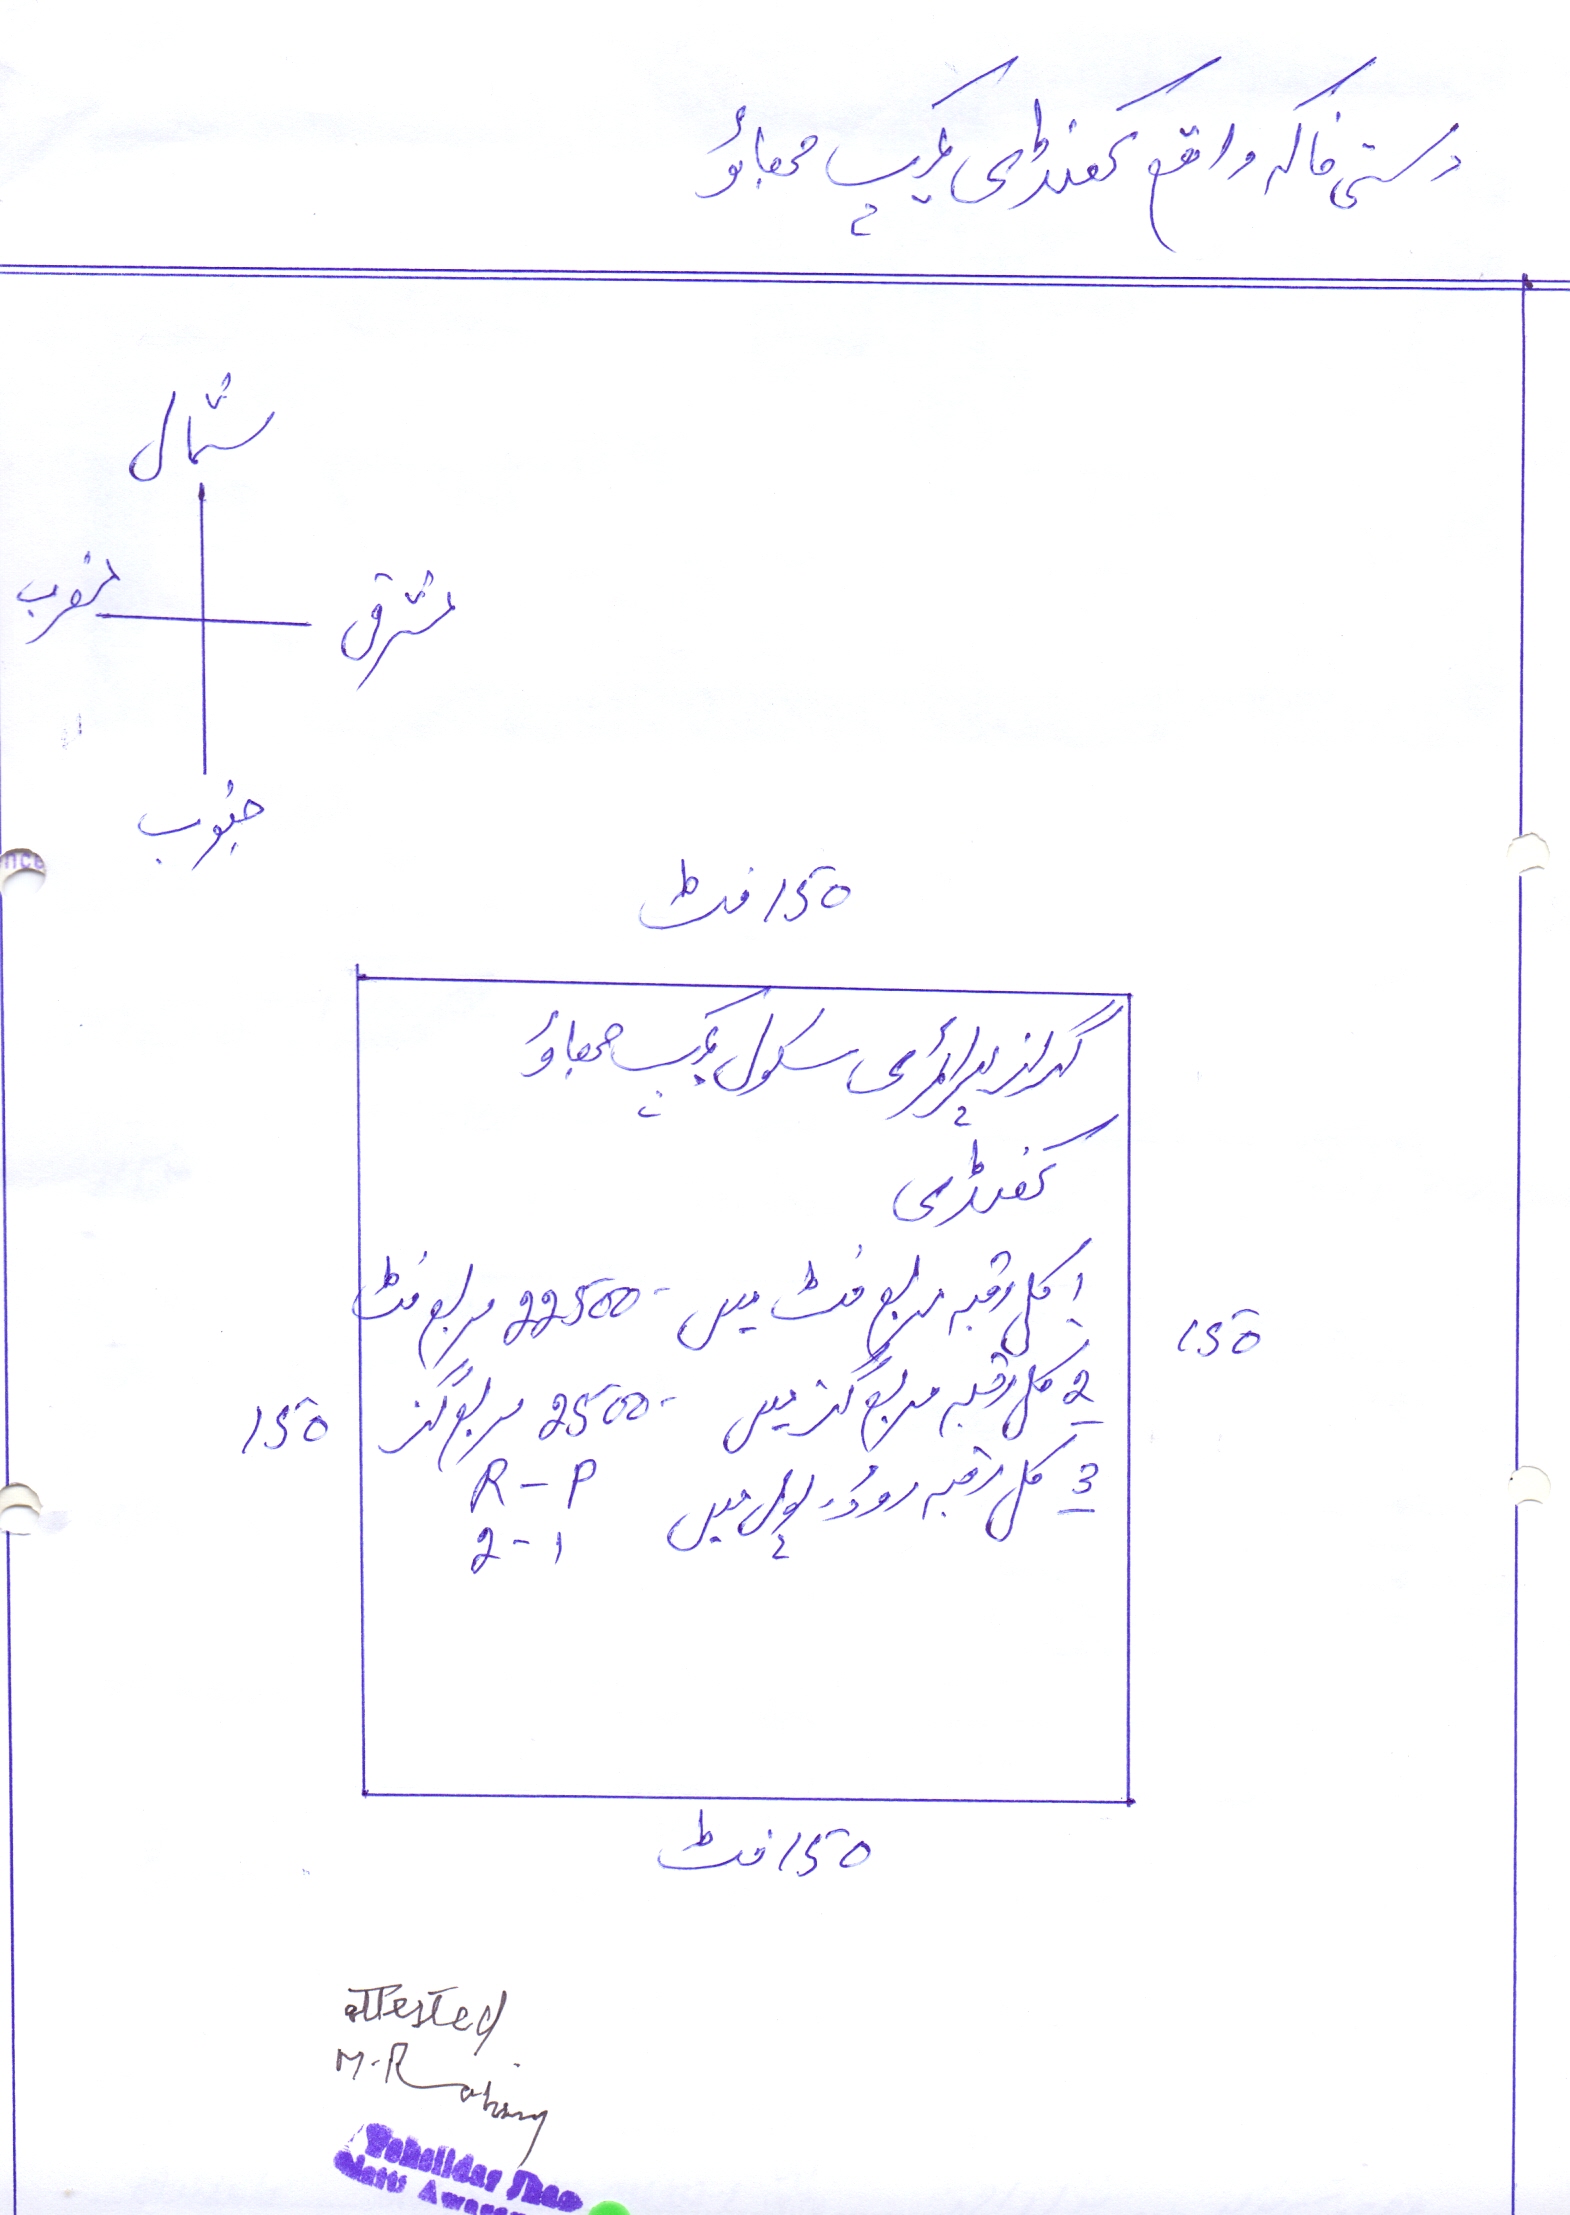 دستی خاکہ واقع کھنڈڑی کیمپ جھاؤ
شمال
مغرب
مشرق
جنوب
150 فٹ
گرلز پرائمری سکول کیمپ جھاؤ
کھنڈڑی
1 کل رقبہ مربع فٹ میں 22500- مربع فٹ
2 کل رقبہ مربع گز میں 2500- مربع گز
3 کل رقبہ روڈ، پول میں R - P
2 - 1
150
150
150 فٹ
attested
M. Rahim
Tehsildar Jhao
Distt: Awaran